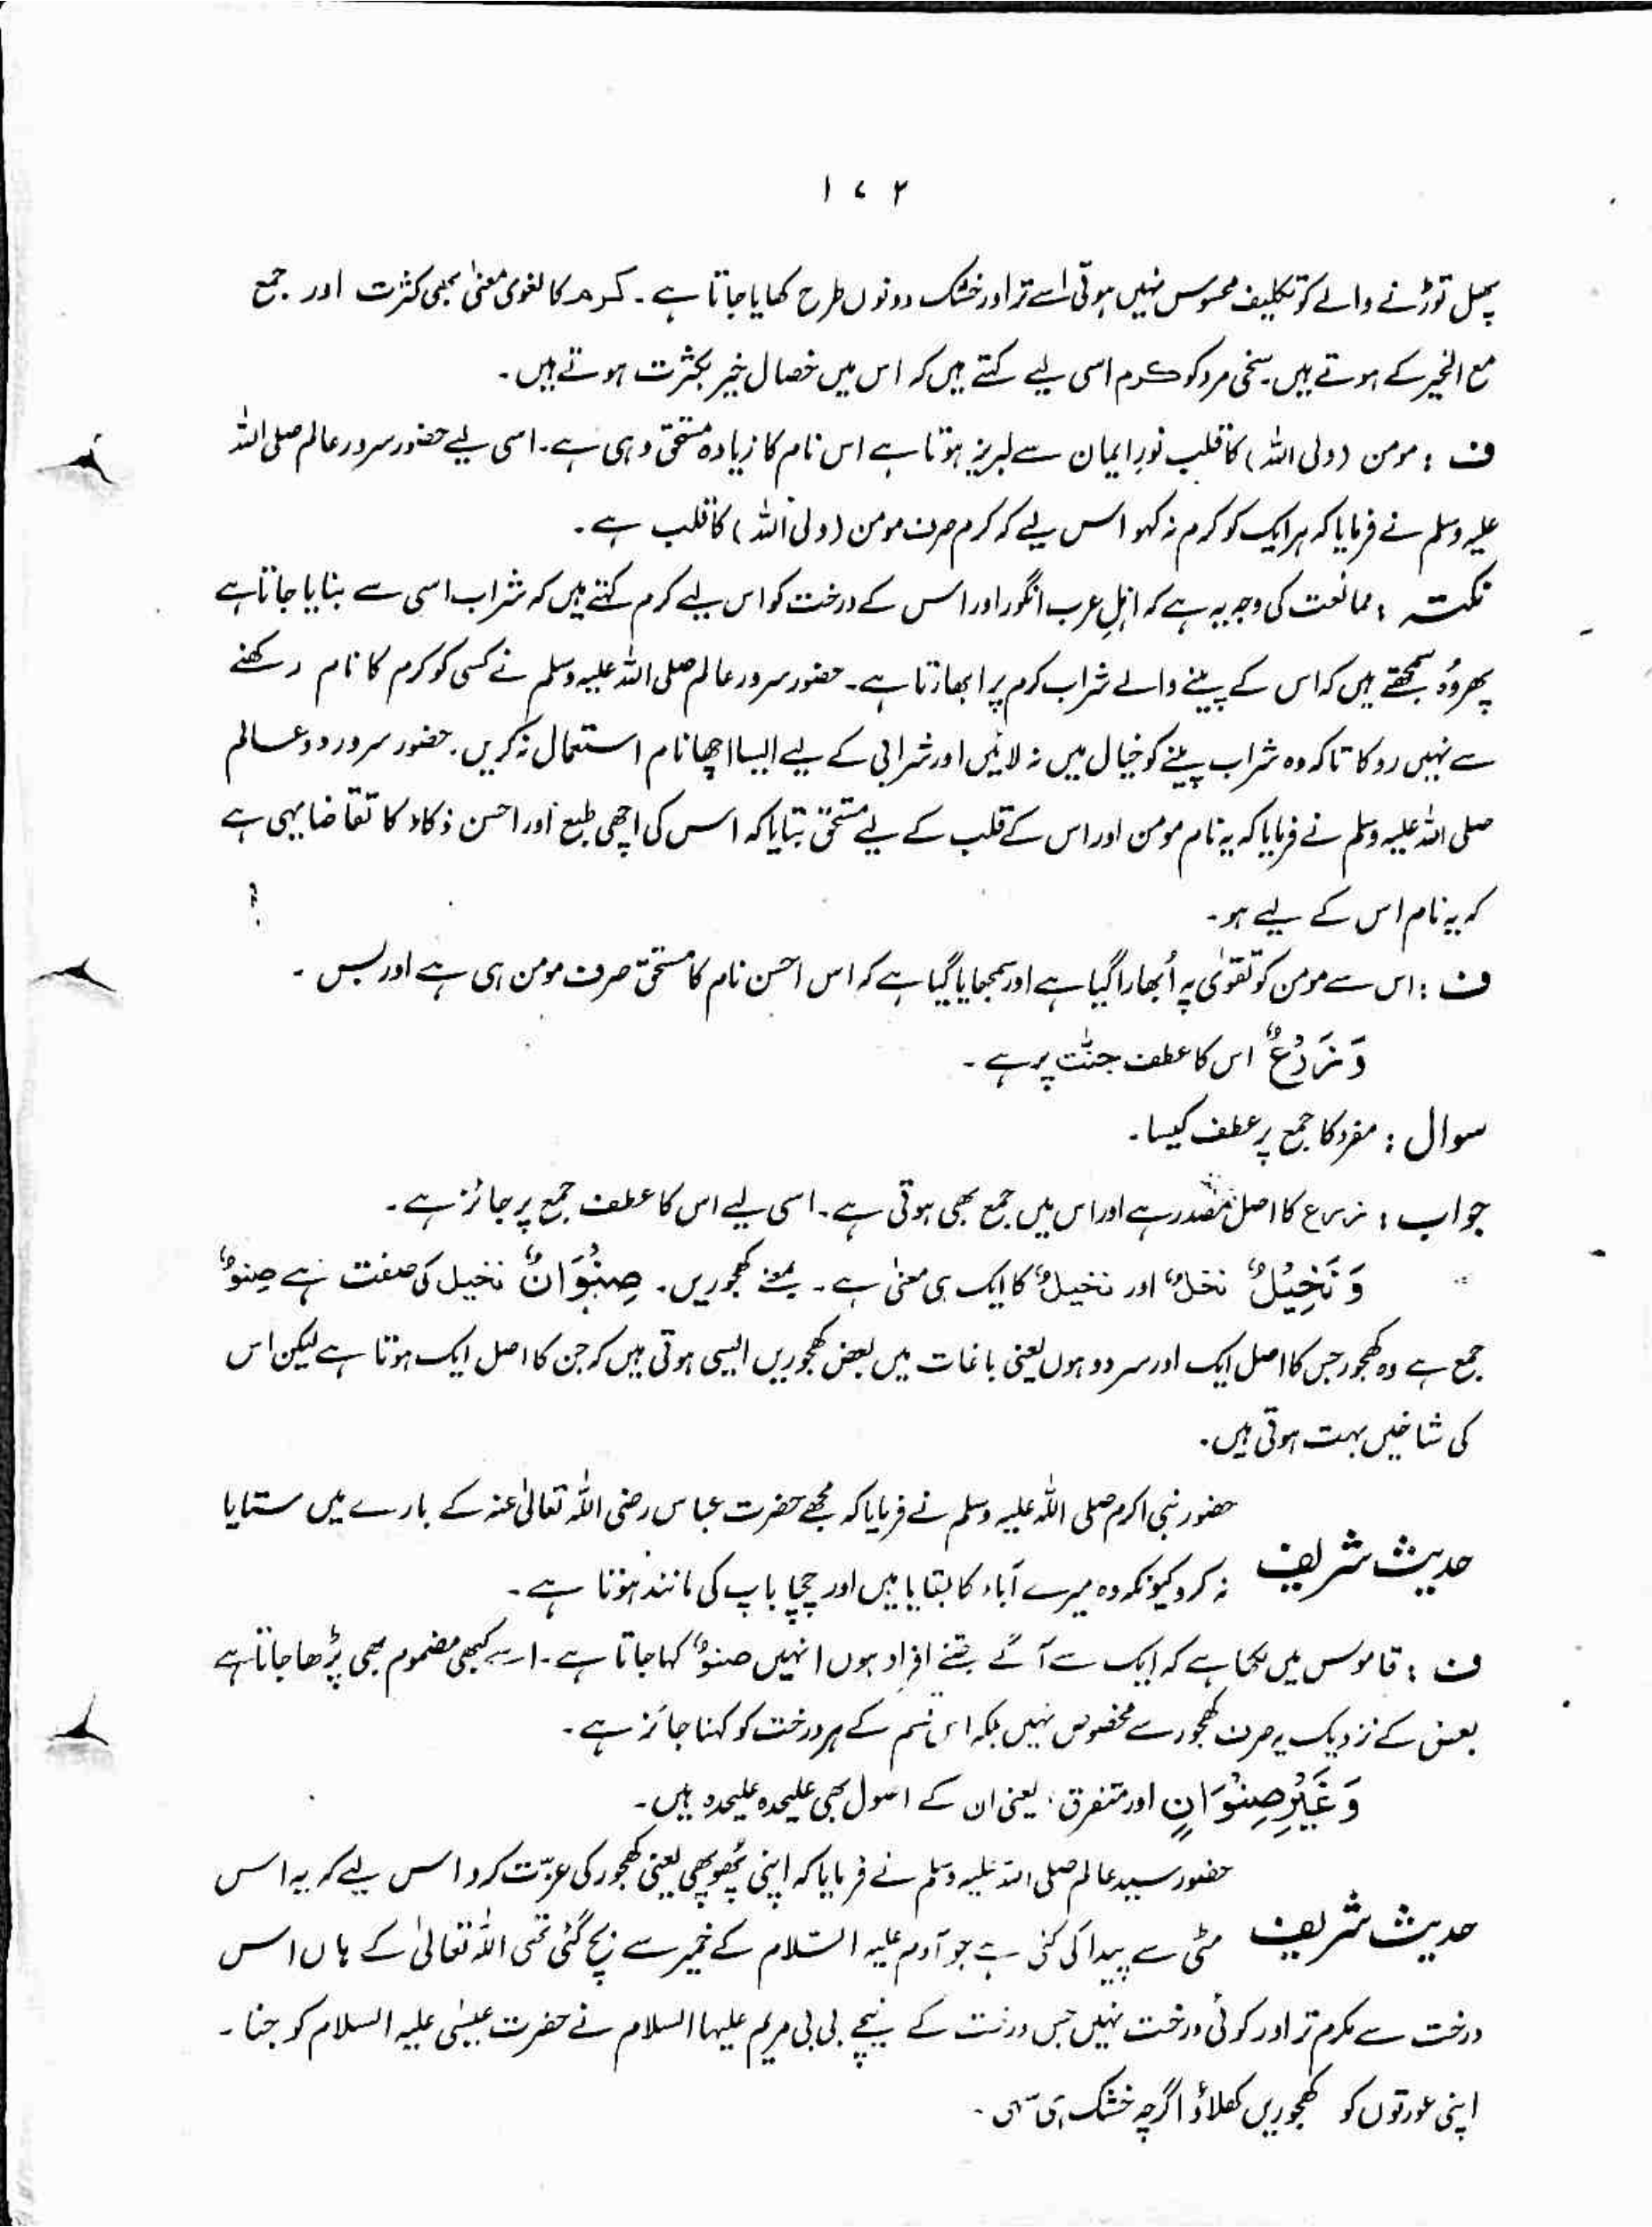 ۱۷۲
پھل توڑنے والے کو تکلیف محسوس نہیں ہوتی اسے تر اور خشک دونوں طرح کھایا جاتا ہے۔ کرم کا لغوی معنیٰ بھی کثرت اور جمع
مع الخیر کے ہوتے ہیں۔ سخی مرد کو کرم اسی لیے کہتے ہیں کہ اس میں خصال خیر بکثرت ہوتے ہیں۔
ف : مومن (ولی اللہ) کا قلب نورِ ایمان سے لبریز ہوتا ہے اس نام کا زیادہ مستحق وہی ہے۔ اسی لیے حضور سرور عالم صلی اللہ
علیہ وسلم نے فرمایا کہ ہر ایک کو کرم نہ کہو اس لیے کہ کرم صرف مومن (ولی اللہ) کا قلب ہے۔
نکتہ : ممانعت کی وجہ یہ ہے کہ اہلِ عرب انگور اور اس کے درخت کو اس لیے کرم کہتے ہیں کہ شراب اسی سے بنایا جاتا ہے
پھر وُہ سمجھتے ہیں کہ اس کے پینے والے شراب کرم پر ابھارتا ہے۔ حضور سرور عالم صلی اللہ علیہ وسلم نے کسی کو کرم کا نام رکھنے
سے نہیں روکا تاکہ وہ شراب پینے کو خیال میں نہ لائیں اور شرابی کے لیے ایسا اچھا نام استعمال نہ کریں۔ حضور سرور دو عالم
صلی اللہ علیہ وسلم نے فرمایا کہ یہ نام مومن اور اس کے قلب کے لیے مستحق بتایا کہ اس کی اچھی طبع اور احسن ذکاء کا تقاضا یہی ہے
کہ یہ نام اس کے لیے ہو۔
ف : اس سے مومن کو تقویٰ پہ اُبھارا گیا ہے اور سمجھایا گیا ہے کہ اس احسن نام کا مستحق صرف مومن ہی ہے اور بس ۔
وَ زَرْعٌ اس کا عطف جنّٰت پر ہے ۔
سوال : مفرد کا جمع پر عطف کیسا۔
جواب : زرع کا اصل مصدر ہے اور اس میں جمع بھی ہوتی ہے۔ اسی لیے اس کا عطف جمع پر جائز ہے ۔
وَ نَخِیْلٌ نخلٌ اور نخیلٌ کا ایک ہی معنیٰ ہے ۔ بمعنے کھجوریں۔ صِنْوَانٌ نخیل کی صفت ہے صِنوٌ
جمع ہے وہ کھجور جس کا اصل ایک اور سر دو ہوں یعنی باغات میں بعض کھجوریں ایسی ہوتی ہیں کہ جن کا اصل ایک ہوتا ہے لیکن اس
کی شاخیں بہت ہوتی ہیں۔
حضور نبی اکرم صلی اللہ علیہ وسلم نے فرمایا کہ مجھے حضرت عباس رضی اللہ تعالیٰ عنہ کے بارے میں ستایا
حدیث شریف نہ کرو کیونکہ وہ میرے آباء کا بقایا ہیں اور چچا باپ کی مانند ہوتا ہے ۔
ف : قاموس میں لکھا ہے کہ ایک سے آگے جتنے افراد ہوں انہیں صنوٌ کہا جاتا ہے ۔ اسے کبھی مضموم بھی پڑھا جاتا ہے
بعض کے نزدیک یہ صرف کھجور سے مخصوص نہیں بلکہ اس قسم کے ہر درخت کو کہنا جائز ہے ۔
وَغَیْرِ صِنْوَانٍ اور متفرق، یعنی ان کے اصول بھی علیحدہ علیحدہ ہیں۔
حضور سید عالم صلی اللہ علیہ وسلم نے فرمایا کہ اپنی پُھوپھی یعنی کھجور کی عزّت کرو اس لیے کہ یہ اس
حدیث شریف مٹی سے پیدا کی گئی ہے جو آدم علیہ السّلام کے خمیر سے بچ گئی تھی اللہ تعالیٰ کے ہاں اس
درخت سے مکرم تر اور کوئی درخت نہیں جس درخت کے نیچے بی بی مریم علیہا السلام نے حضرت عیسٰی علیہ السلام کو جنا ۔
اپنی عورتوں کو کھجوریں کھلاؤ اگرچہ خشک ہی سہی ۔